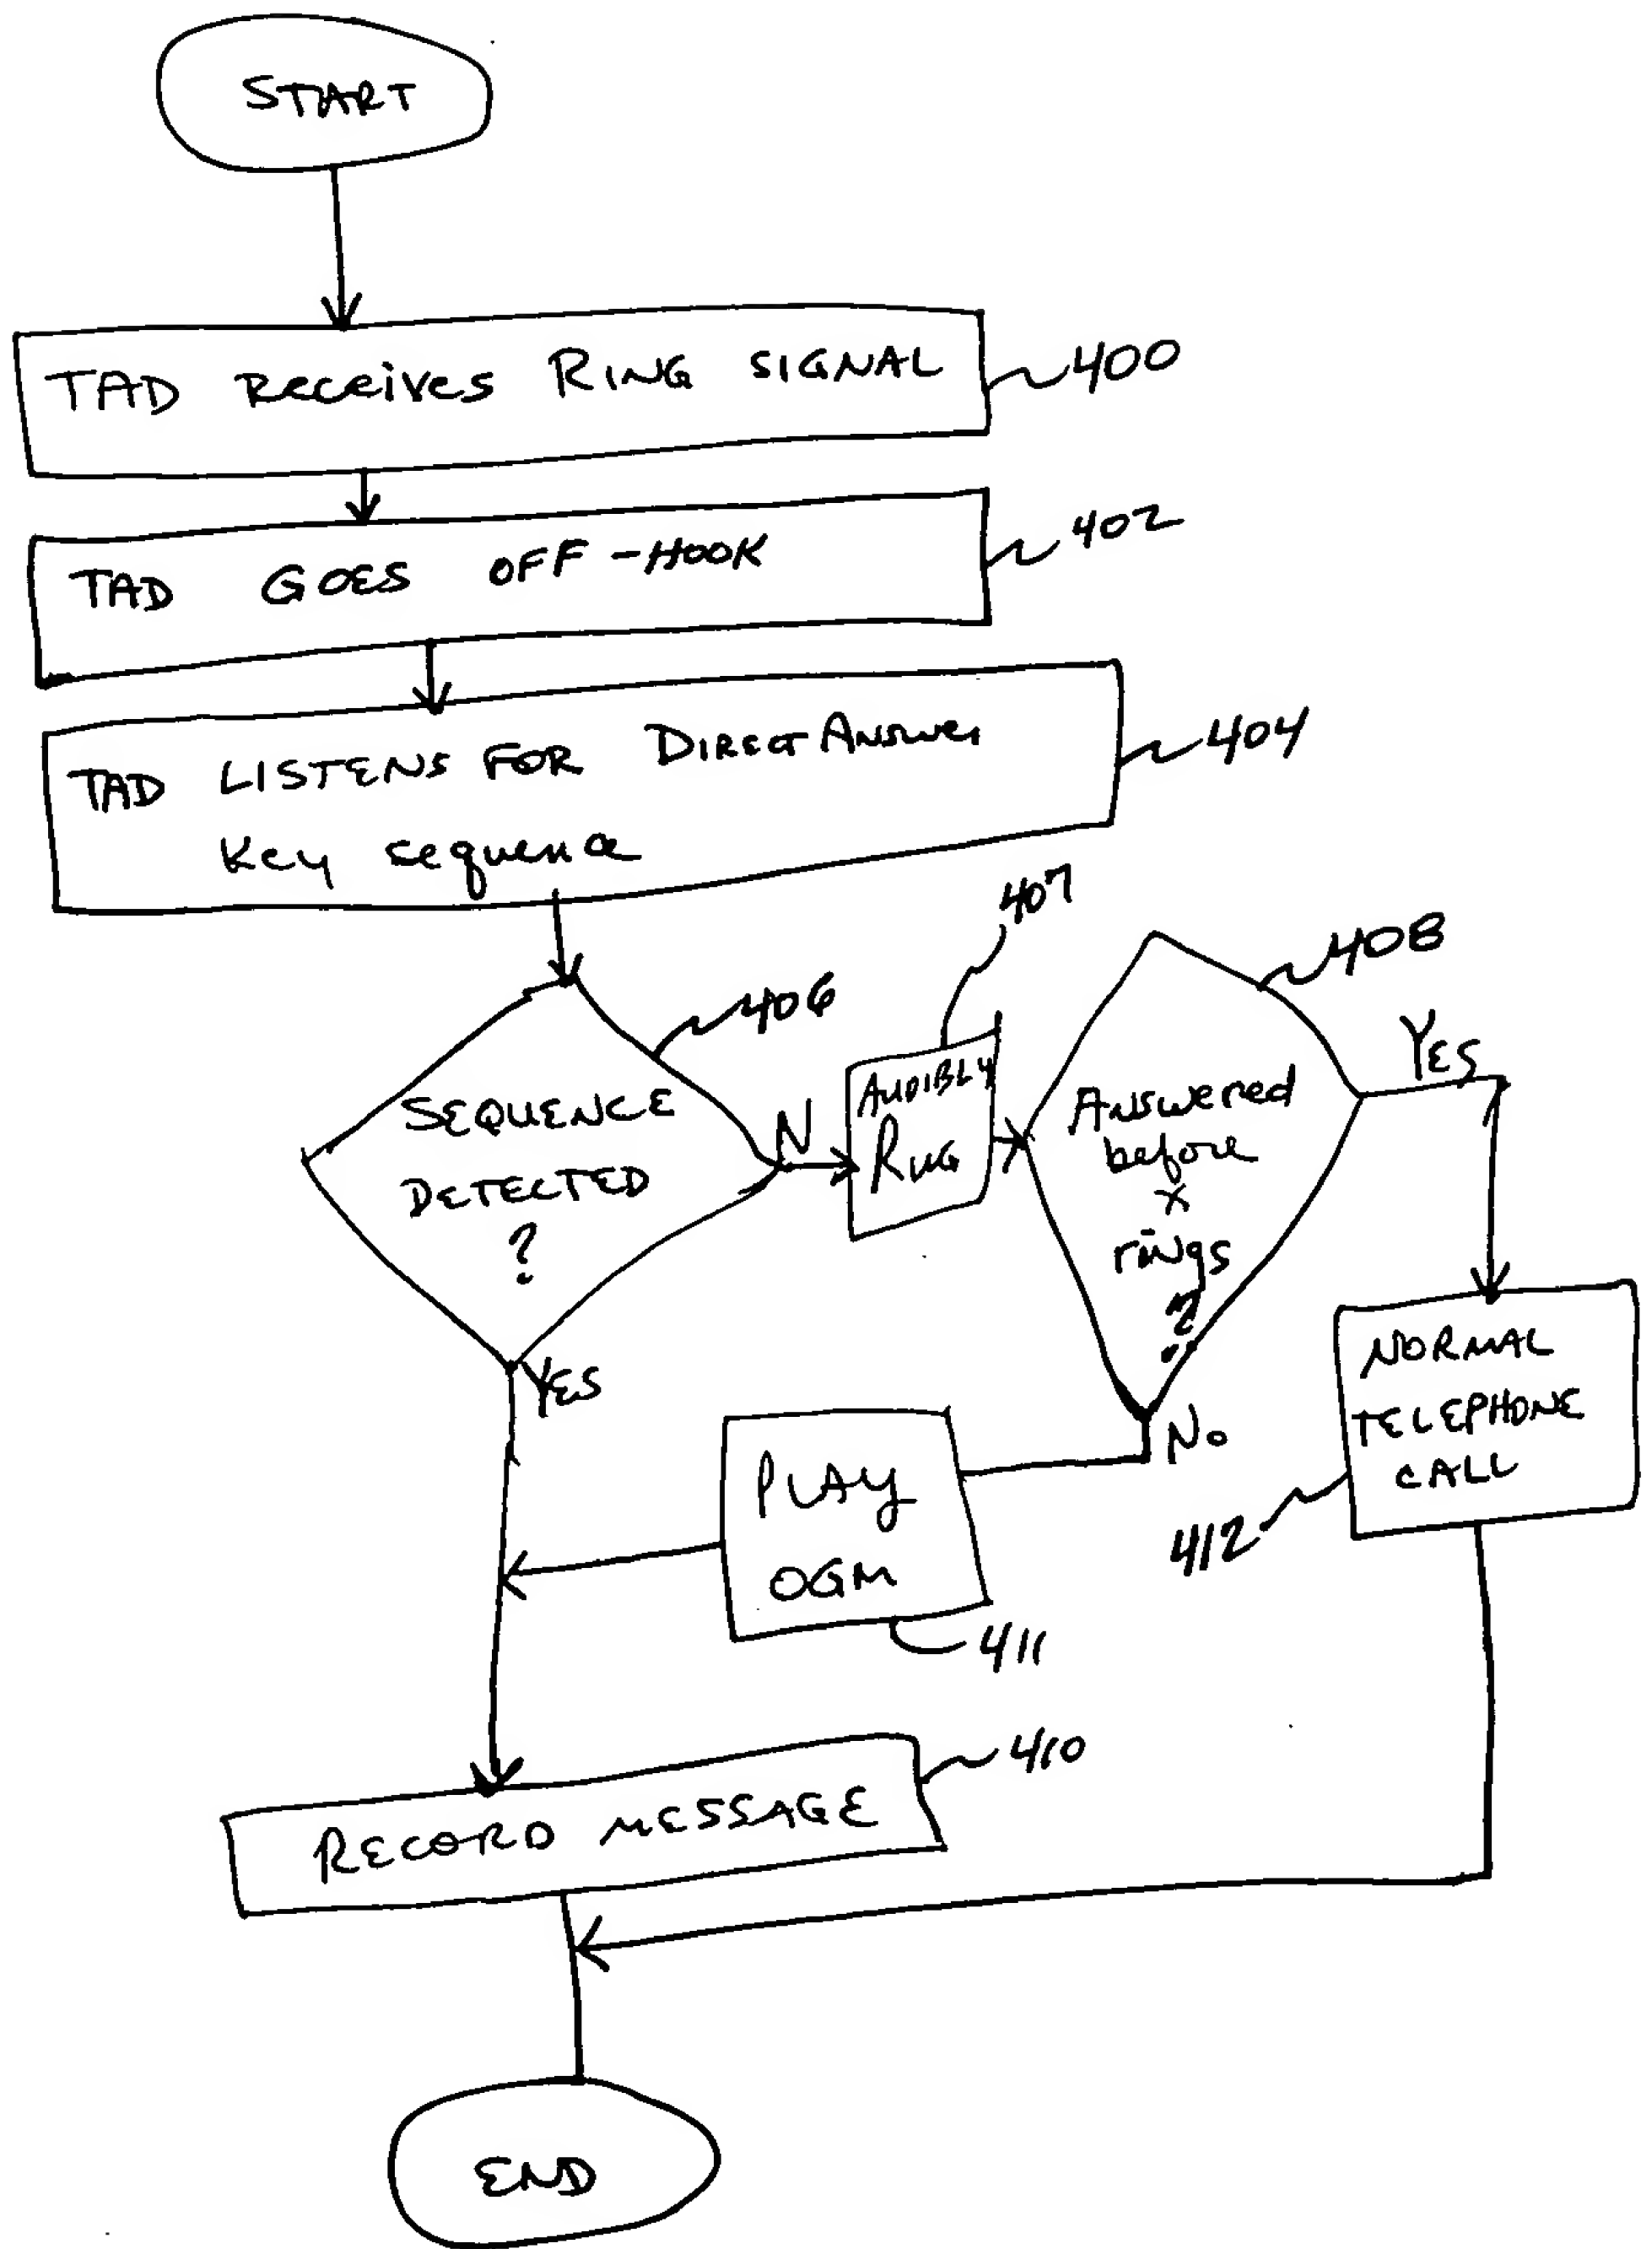 START
TAD Receives RING SIGNAL
400
TAD GOES OFF-HOOK
402
TAD LISTENS FOR DIRECT ANSWER
Key sequence
404
406
SEQUENCE
DETECTED
?
N
YES
407
AUDIBLY
RING
408
Answered
before
x
rings
?
YES
No
NORMAL
TELEPHONE
CALL
412
PLAY
OGM
411
RECORD MESSAGE
410
END